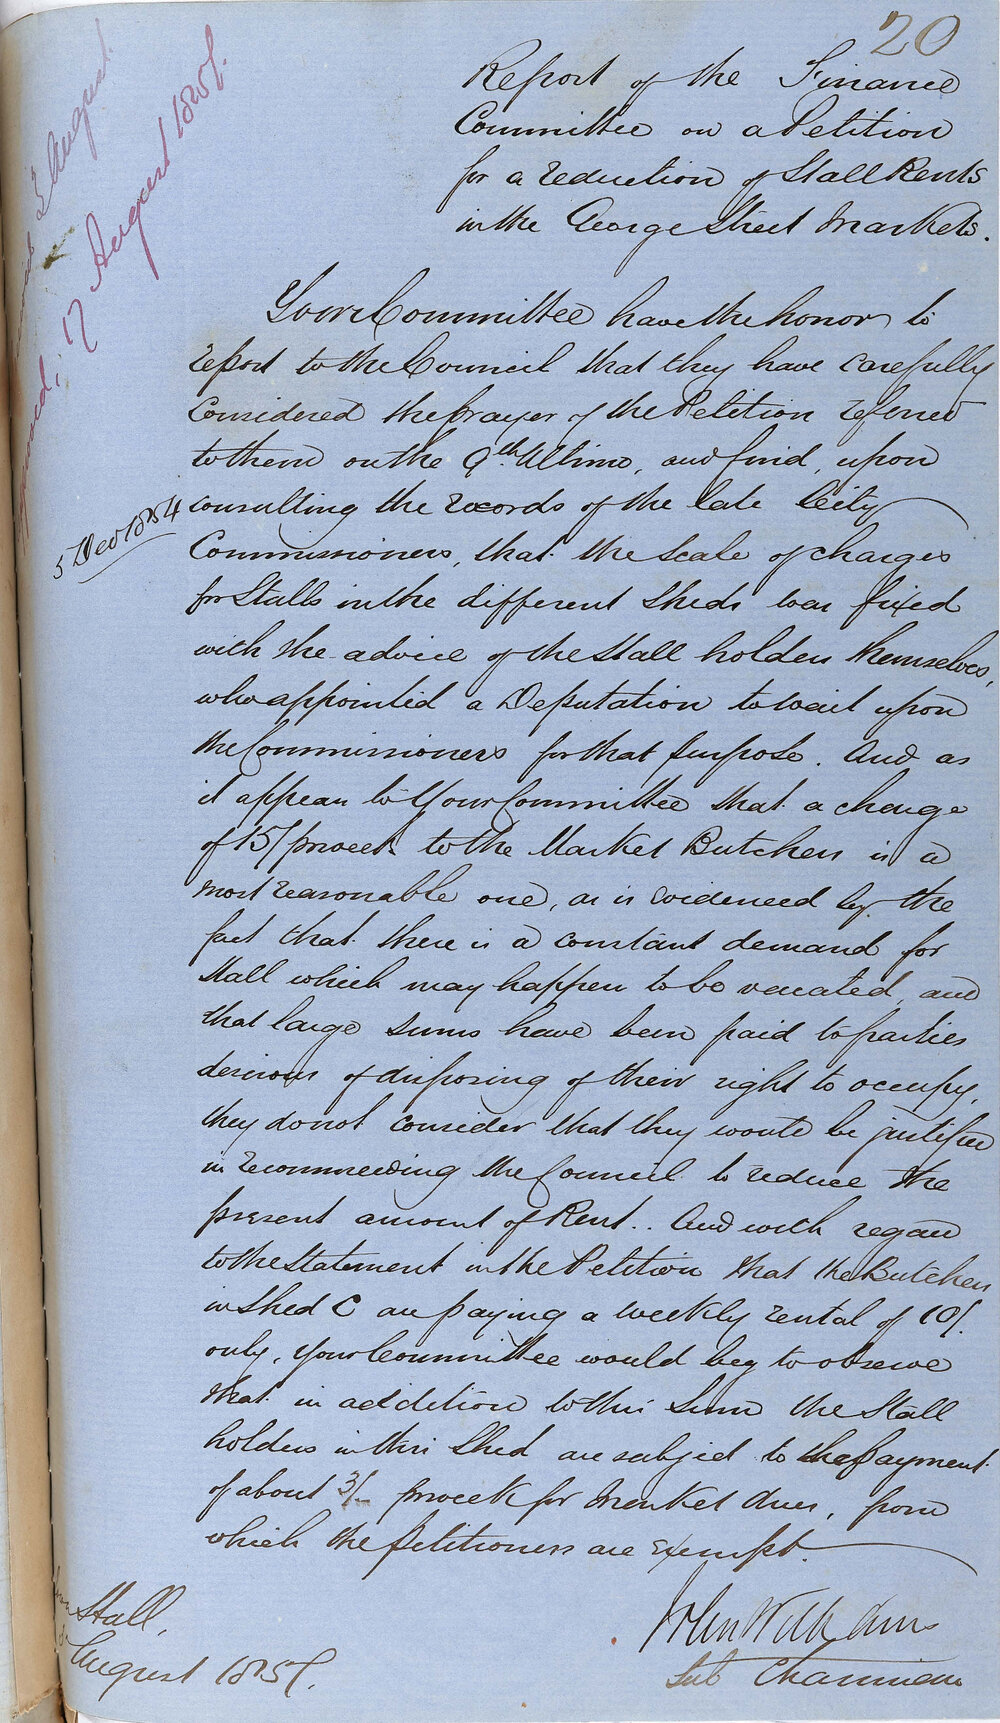 20
Report of the Finance
Committee on a Petition
for a reduction of Stall Rents
in the George Street Markets.
August
17 August 1857.
Your Committee have the honor to
report to the Council that they have carefully
considered the prayer of the Petition referred
to them on the 9th Ultimo, and find, upon
5 Dec 1854
consulting the records of the late City
Commissioners, that the Scale of charges
for Stalls in the different Sheds was fixed
with the advice of the Stall holders themselves,
who appointed a Deputation to wait upon
the Commissioners for that purpose. And as
it appears to Your Committee that a charge
of 15/ pr week to the Market Butchers is a
most reasonable one, as is evidenced by the
fact that there is a constant demand for
Stall which may happen to be vacated, and
that large sums have been paid to parties
desirous of disposing of their right to occupy,
they do not consider that they would be justified
in recommending the Council to reduce the
present amount of Rent.. And with regard
to the Statement in the Petition that the Butchers
in Shed C are paying a weekly rental of 10/.
only, Your Committee would beg to observe
that in addition to this Sum the Stall
holders in this Shed are subject to the payment
of about 3/- pr week for Market dues, from
which the petitioners are exempt.
John Williams
Sub Chairman
Hall,
August 1857.